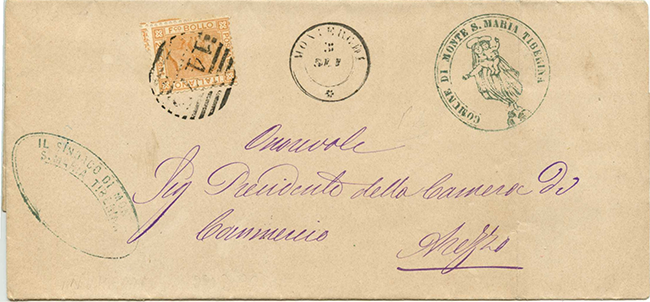 BOLLO
MONTERCHI
3
COMUNE DI MONTE S. MARIA TIBERINA
IL SINDACO DI M.
S. MARIA TIBERINA
Onorevole
Sig Presidente della Camera di
Commercio
Arezzo